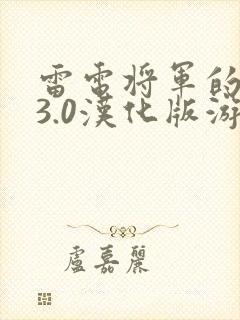 雷電将軍的
3.0漢化版游
盧嘉麗